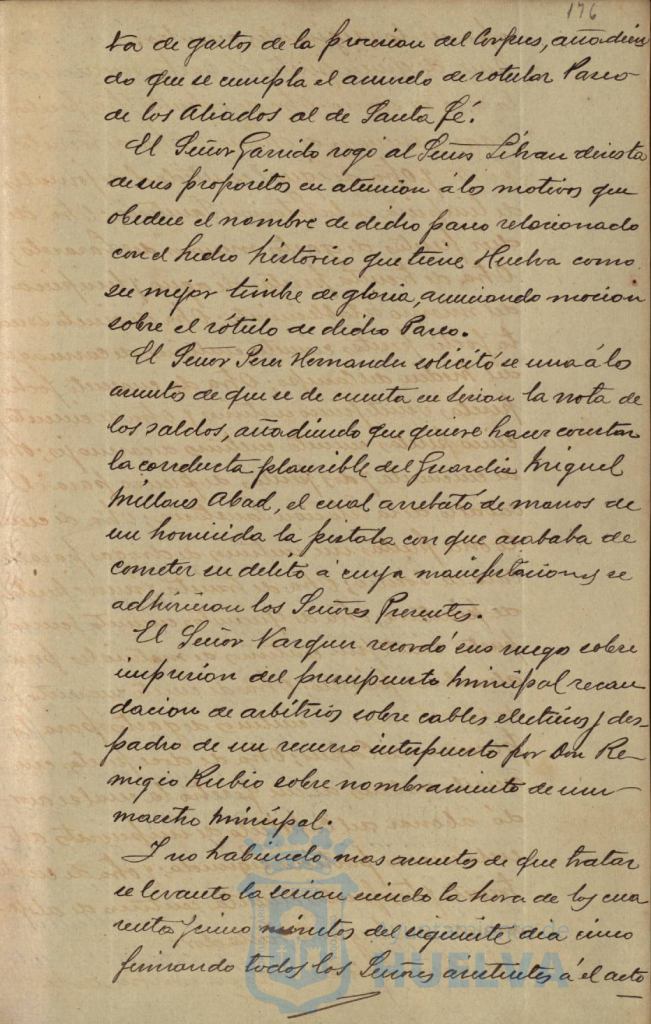 176
ta de gastos de la procesion del Corpus, añadien
do que se cumpla el acuerdo de rotular Paseo
de los Aliados al de Santa Fé.
El Señor Garrido rogó al Señor desista
de sus propositos en atencion á los motivos que
obedece el nombre de dicho paseo relacionado
con el hecho historico que tiene Huelva como
su mejor timbre de gloria, anunciando mocion
sobre el rótulo de dicho Paseo.
El Señor Perez Hernandez solicitó se una á los
asuntos de que se de cuenta en sesion la nota de
los saldos, añadiendo que quiere hacer constar
la conducta plausible del Guardia Miguel
Millares Abad, el cual arrebató de manos de
un homicida la pistola con que acababa de
cometer su delito á cuya manifestaciones se
adhirieron los Señores Presentes.
El Señor Vazquez recordó sus ruego sobre
impresion del presupuesto Municipal recau
dacion de arbitrios sobre cables electricos y des-
pacho de un recurso interpuesto por Don Re-
migio Rubio sobre nombramiento de un
maestro Municipal.
I no habiendo mas asuntos de que tratar
se levanto la sesion siendo la hora de los cua
renta y cinco minutos del siguiente dia cinco
firmando todos los Señores asistentes á el acto
HUELVA